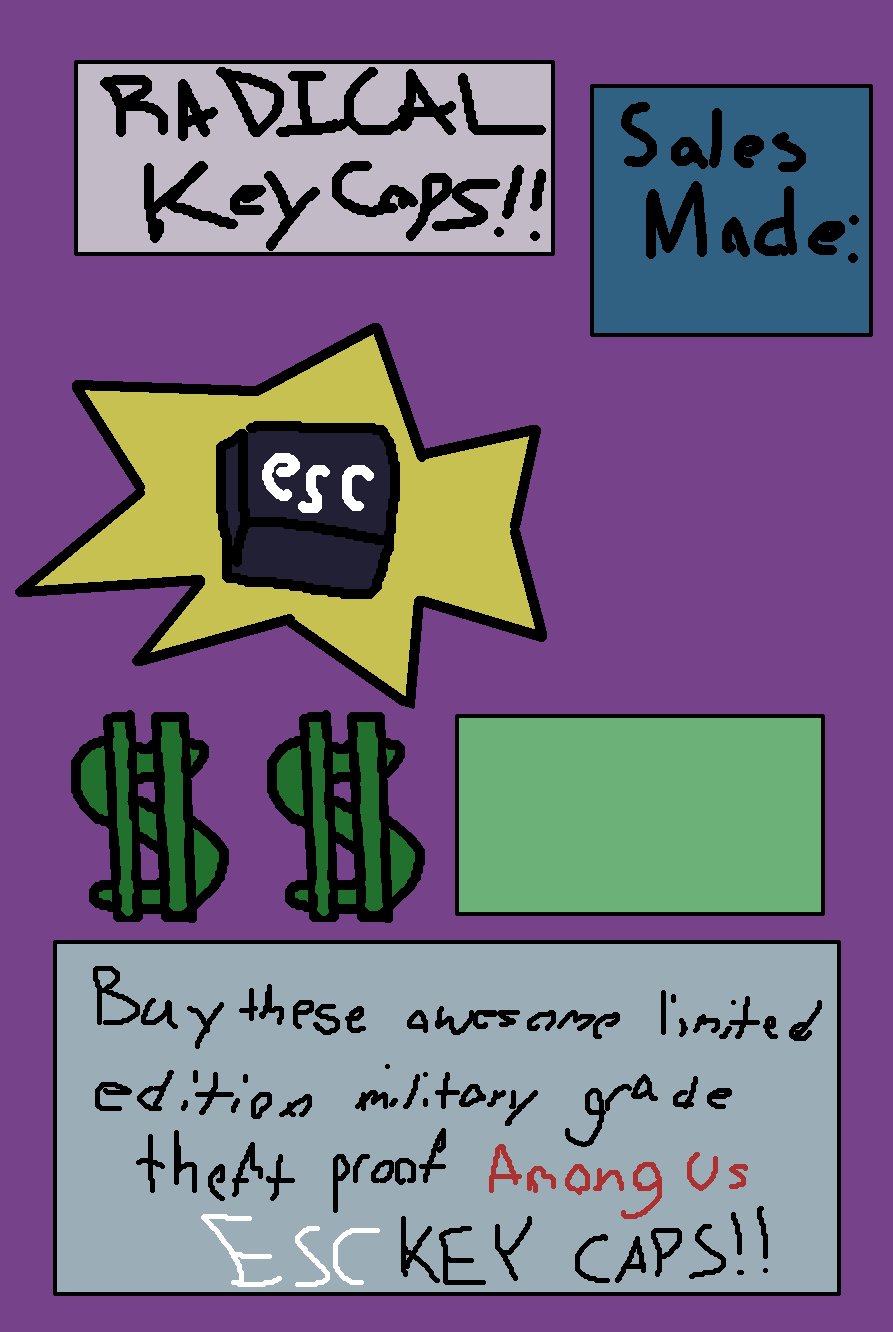 RADICAL
KeyCaps!!
Sales
Made:
esc
Buy these awesome limited
edition military grade
theft proof Among Us
ESC KEY CAPS!!